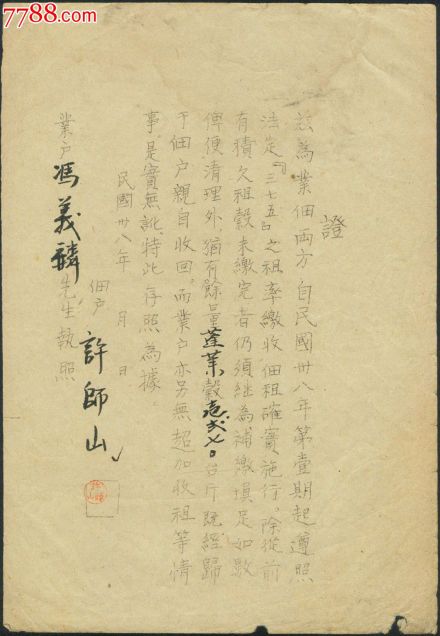 7788.com
證
玆為業佃兩方自民國卅八年第壹期起遵照
法定『三七五』之租率繳收佃租確實施行。除從前
有積欠租穀未繳完者仍須繼為補繳填足如數
俾便清理外,猶有餘量蓬萊穀壱弐七〇台斤既經歸
于佃户親自收回,而業户亦另無超加收租等情
事,是實無訛,特此存照為據。
民國卅八年 月 日
佃户 許師山
業户馮義麟先生執照